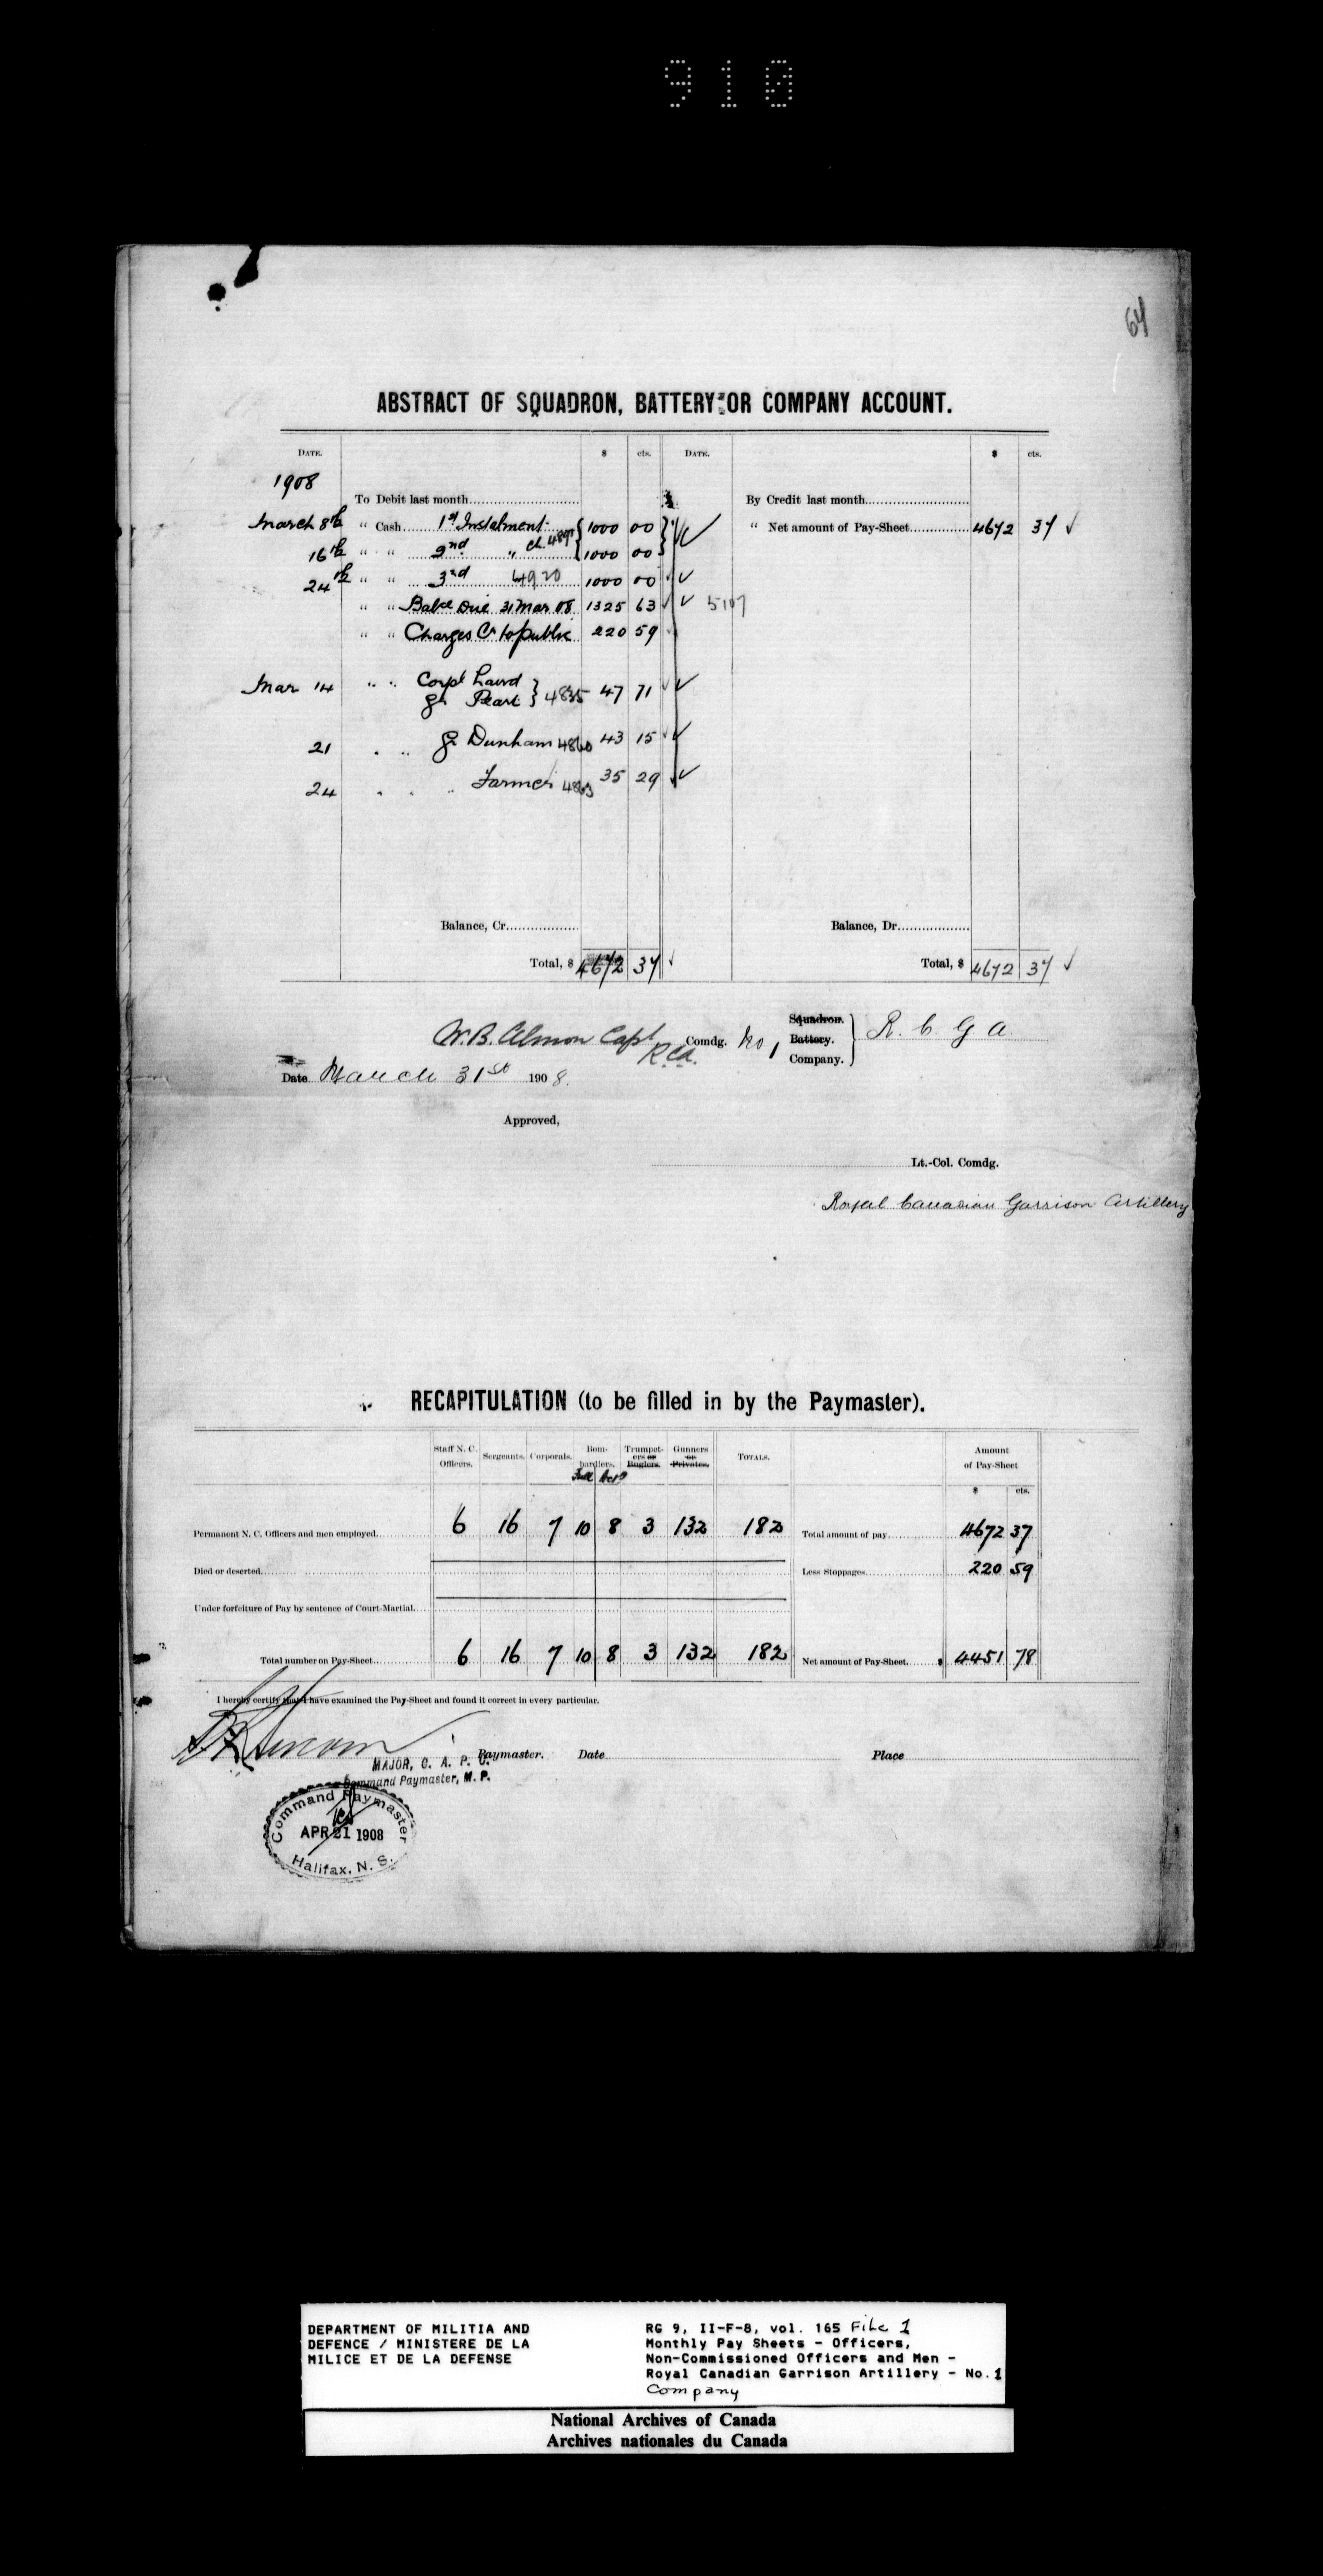 910
64
ABSTRACT OF SQUADRON, BATTERY OR COMPANY ACCOUNT.
DATE. $ cts. DATE. $ cts.
1908
To Debit last month By Credit last month
March 8th " Cash 1st Instalment 1000 00 " Net amount of Pay-Sheet 4672 37
16th " " 2nd " ch. 1000 00
24th " " 3rd 4920 1000 00
" " Balce Due 31 Mar 08 1325 63 5107
" " Charges Cr to public 220 59
Mar 14 " " Corpl Laird
Gr Peart } 4835 47 71
21 " " Gr Dunham 4860 43 15
24 " " " Farmer 35 29
Balance, Cr. Balance, Dr.
Total, $ 4672 37 Total, $ 4672 37
W.B. Almon Capt R.C.A. Comdg. No 1 Squadron. Battery. Company. } R. C. G. A.
Date March 31st 1908.
Approved,
Lt.-Col. Comdg.
Royal Canadian Garrison Artillery
RECAPITULATION (to be filled in by the Paymaster).
Staff N. C. Officers. Sergeants. Corporals. Bombardiers. Full Actg Trumpeters or Buglers. Gunners or Privates. TOTALS. Amount of Pay-Sheet
$ cts.
Permanent N. C. Officers and men employed 6 16 7 10 8 3 132 182 Total amount of pay 4672 37
Died or deserted Less Stoppages 220 59
Under forfeiture of Pay by sentence of Court-Martial
Total number on Pay-Sheet 6 16 7 10 8 3 132 182 Net amount of Pay-Sheet $ 4451 78
I hereby certify that I have examined the Pay-Sheet and found it correct in every particular.
Paymaster. Date Place
MAJOR, C. A. P. C.
Command Paymaster, M. P.
Command Paymaster
APR 21 1908
Halifax, N. S.
DEPARTMENT OF MILITIA AND
DEFENCE / MINISTERE DE LA
MILICE ET DE LA DEFENSE
RG 9, II-F-8, vol. 165 File 1
Monthly Pay Sheets - Officers,
Non-Commissioned Officers and Men -
Royal Canadian Garrison Artillery - No.1
Company
National Archives of Canada
Archives nationales du Canada